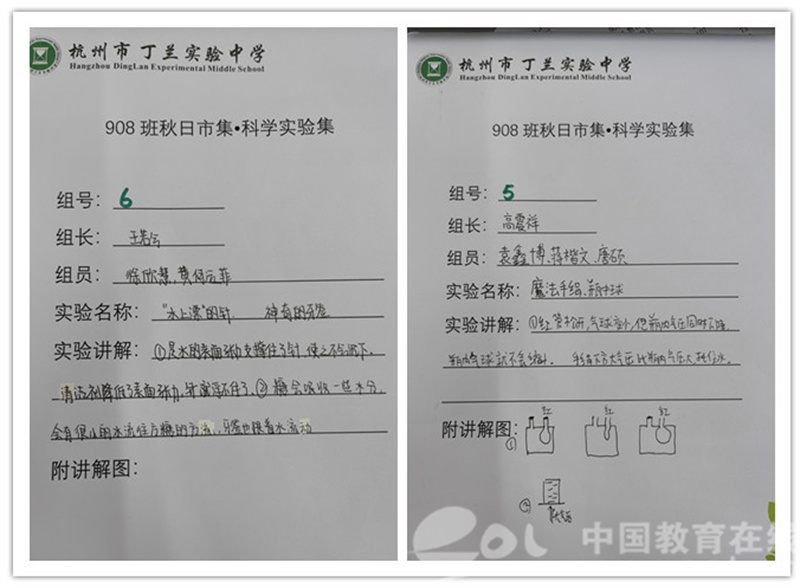 杭州市丁兰实验中学
Hangzhou DingLan Experimental Middle School
908 班秋日市集•科学实验集
组号：6
组长：
组员：徐欣慧、黄何元菲
实验名称：“水上漂”的针 神奇的牙签
实验讲解：①是水的表面张力支撑住了针，使之不会沉下。
清洁剂降低了表面张力，针就浮不住了。②糖会吸收一些水分，
会有很小的水流往方糖的方，牙签也跟着水流动
附讲解图：
杭州市丁兰实验中学
Hangzhou DingLan Experimental Middle School
908 班秋日市集•科学实验集
组号：5
组长：高震祥
组员：袁鑫博、蒋楷文、唐硕
实验名称：魔法手绢、瓶中球
实验讲解：①红管松开，气球变小，但瓶内气压同时下降，
瓶内气球就不会缩小。 大气压比瓶内气压大，托住水。
附讲解图：
红 红 红
①
②
大气压
eol 中国教育在线